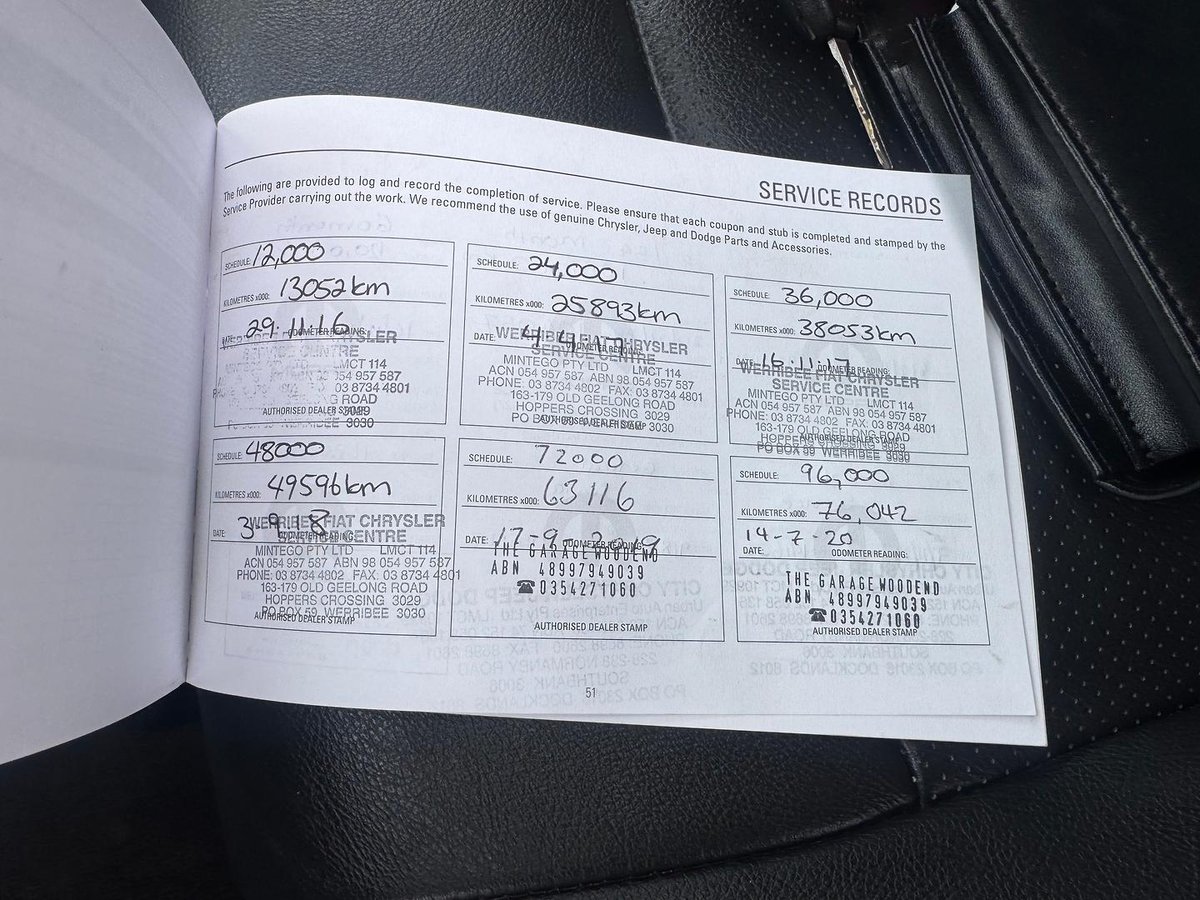 SERVICE RECORDS
The following are provided to log and record the completion of service. Please ensure that each coupon and stub is completed and stamped by the
Service Provider carrying out the work. We recommend the use of genuine Chrysler, Jeep and Dodge Parts and Accessories.
SCHEDULE: 12,000
KILOMETRES x000: 13052km
DATE: 29.11.16 ODOMETER READING:
CHRYSLER
SERVICE CENTRE
LMCT 114
054 957 587
03 8734 4801
GEELONG ROAD
3029
AUTHORISED DEALER STAMP
3030
SCHEDULE: 24,000
KILOMETRES x000: 25893km
DATE: 4.4.17 ODOMETER READING:
WERRIBEE FIAT CHRYSLER
SERVICE CENTRE
MINTEGO PTY LTD LMCT 114
ACN 054 957 587 ABN 98 054 957 587
PHONE: 03 8734 4802 FAX: 03 8734 4801
163-179 OLD GEELONG ROAD
HOPPERS CROSSING 3029
PO BOX 99 WERRIBEE 3030
AUTHORISED DEALER STAMP
SCHEDULE: 36,000
KILOMETRES x000: 38053km
DATE: 16.11.17 ODOMETER READING:
WERRIBEE FIAT CHRYSLER
SERVICE CENTRE
MINTEGO PTY LTD LMCT 114
ACN 054 957 587 ABN 98 054 957 587
PHONE: 03 8734 4802 FAX: 03 8734 4801
163-179 OLD GEELONG ROAD
HOPPERS CROSSING 3029
AUTHORISED DEALER STAMP
PO BOX 99 WERRIBEE 3030
SCHEDULE: 48000
KILOMETRES x000: 49596km
DATE: 3-9-18 ODOMETER READING:
WERRIBEE FIAT CHRYSLER
SERVICE CENTRE
MINTEGO PTY LTD LMCT 114
ACN 054 957 587 ABN 98 054 957 587
PHONE: 03 8734 4802 FAX: 03 8734 4801
163-179 OLD GEELONG ROAD
HOPPERS CROSSING 3029
PO BOX 99 WERRIBEE 3030
AUTHORISED DEALER STAMP
SCHEDULE: 72000
KILOMETRES x000: 63116
DATE: 17-9-2019 ODOMETER READING:
THE GARAGE WOODEND
ABN 48997949039
☎0354271060
AUTHORISED DEALER STAMP
SCHEDULE: 96,000
KILOMETRES x000: 76,042
14-7-20
DATE: ODOMETER READING:
THE GARAGE WOODEND
ABN 48997949039
☎0354271060
AUTHORISED DEALER STAMP
51